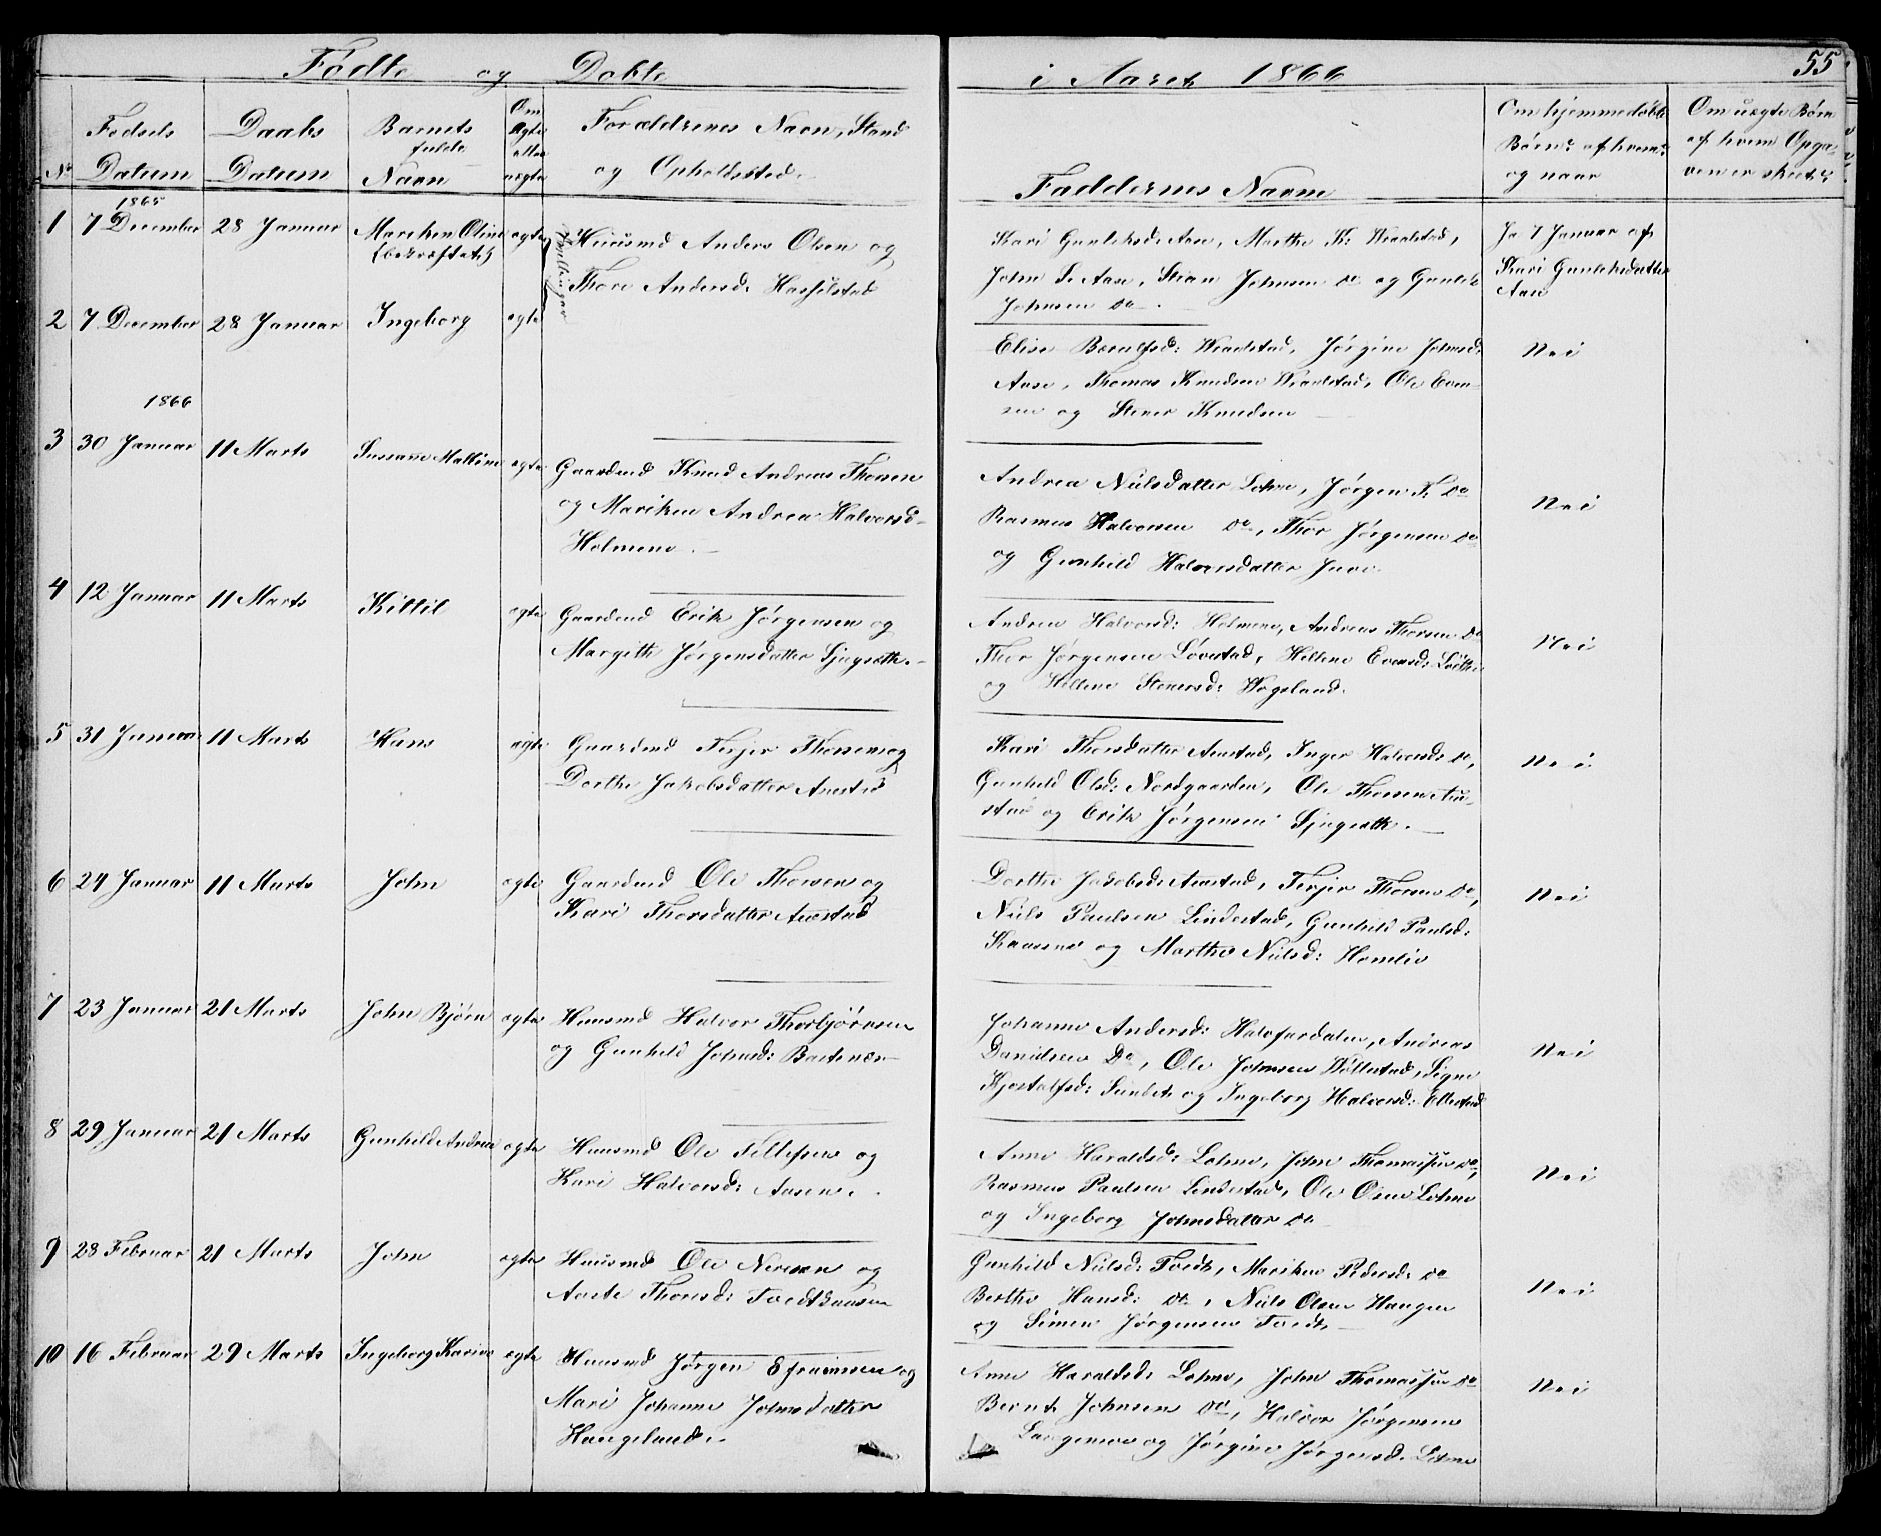 Fødte og Døbte i Aaret 1866 55
No Fødsels Datum Daabs Datum Barnets fulde Navn Om ægte eller uægte Forældrenes Navn, Stand og Opholdssted. Faddernes Navne Om hjemmedøbte Børn: af hvem? og naar Om uægte Børn af hvem Opgaven er skeet?
1865
1 7 December 28 Januar Mariken Oline (bekræftet) ægte Tvillinger
Huusmd Anders Olsen og
Thore Andersd:
Kari Gunleksd: Aase, Marthe K:
John S. Aase, Stian Johnsen Do og Gunlek
Johnsen Do.
Ja 7 Januar af
Kari Gunleksdatter
Aase
2 7 December 28 Januar Ingeborg ægte
Elise Jørgine Johnsd:
Aase, Thomas Knudsen Ole Even-
sen og Stener Knudsen
Nei
1866
3 30 Januar 11 Marts Susanne Mallene ægte
Gaardmd Knud Andreas Thorsen
og Mariken Andrea Halvorsd.
Holmene.
Andrea Nielsdatter Lohne, Jørgen T. Do
Rasmus Halvorsen Do, Thor Jørgensen Do
og Gunhild Halvorsdatter Juve.
Nei
4 12 Januar 11 Marts Kittil ægte
Gaardmd Erik Jørgensen og
Margith Jørgensdatter
Andrea Halvorsd: Holmene, Andreas Thorsen Do
Thor Jørgensen Løvestad, Hellene Evensd:
og Hellene Stenersd: Vegeland.
Nei
5 31 Januar 11 Marts Hans ægte
Gaardmd Terjer Thorsen og
Dorthe Jakobsdatter Amstad
Kari Thorsdatter Amstad, Inger Halvorsd: Do,
Gunhild Olsd: Nordgaarden, Ole Thorsen Am-
stad og Erik Jørgensen
Nei
6 24 Januar 11 Marts John ægte
Gaardmd Ole Thorsen og
Kari Thorsdatter Amstad
Dorthe Jakobsd: Amstad, Terjer Thorsen Do,
Niels Paulsen Lindestad, Gunhild Paulsd:
og Marthe Nielsd: Homlie
Nei
7 23 Januar 21 Marts John Bjørn ægte
Huusmd Halvor Thorbjørnsen
og Gunhild Johnsd:
Johanne Andersd: Andreas
Danielsen Do, Ole Johnsen Signe
og Ingeborg Halvorsd: Ellestad
Nei
8 29 Januar 21 Marts Gunhild Andrea ægte
Huusmd Ole Tellefsen og
Kari Halvorsd: Aasen.
Anne Haraldsd: Lohne, John Thomassen Do,
Rasmus Paulsen Lindestad, Ole Olsen Lohne
og Ingeborg Johnsdatter Do
Nei
9 28 Februar 21 Marts John ægte
Huusmd Ole Nersen og
Aaste Thorsd:
Gunhild Nielsd: Tvedt, Mariken Pedersd: Do
Berthe Hansd: Do, Niels Olsen Haugen
og Simen Jørgensen Tvedt.
Nei
10 16 Februar 29 Marts Ingeborg Karine ægte
Huusmd Jørgen Efraimsen og
Mari Johanne Johnsdatter
Haugeland.
Anne Haraldsd: Lohne, John Thomassen Do
Bernt Johnsen Do, Halvor Jørgensen
Langenes og Jørgine Jørgensd. Lohne
Nei